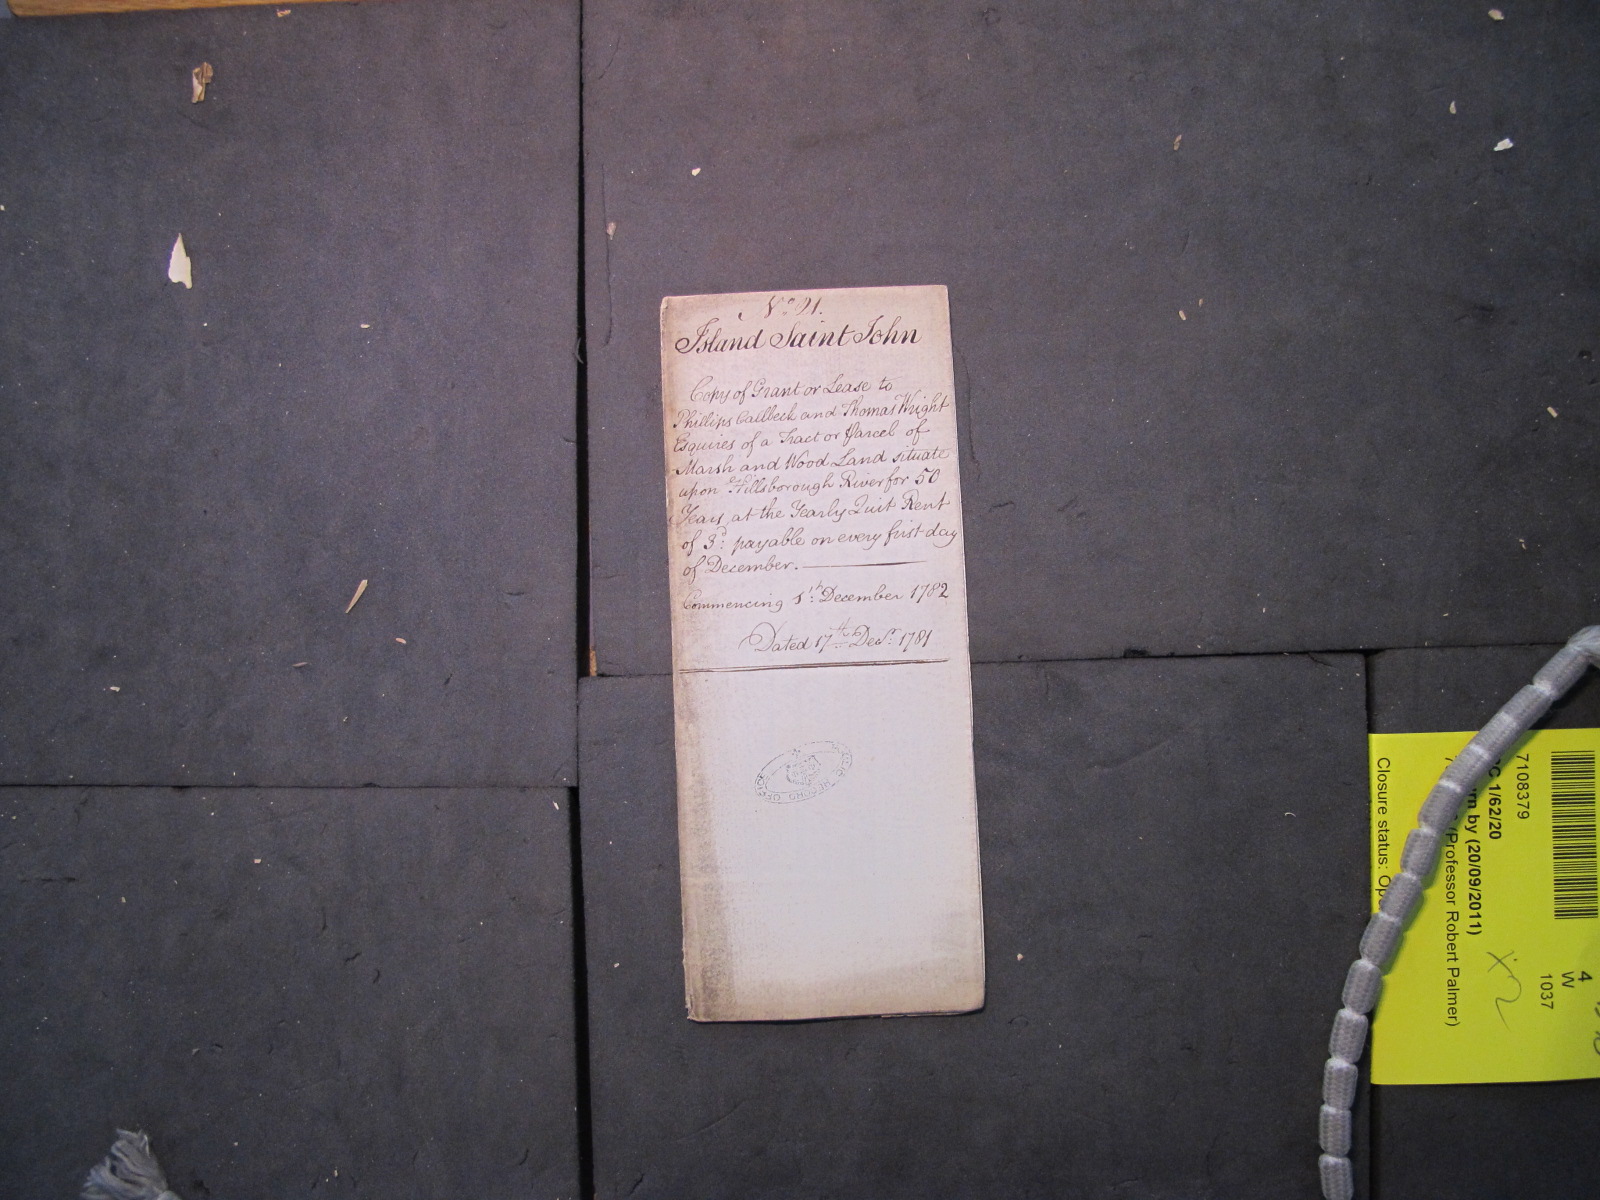 No. 21.
Island Saint John
Copy of Grant or Lease to
Phillips Callbeck and Thomas Wright
Esquires of a Tract or Parcel of
Marsh and Wood Land situate
upon Hillsborough River for 50
Years, at the Yearly Quit Rent
of 3d: payable on every first day
of December.
Commencing 1st: December 1782
Dated 17th Decr. 1781
RECORD OFFICE
7108379
1/62/20
by (20/09/2011)
(Professor Robert Palmer)
Closure status:
4
W
1037